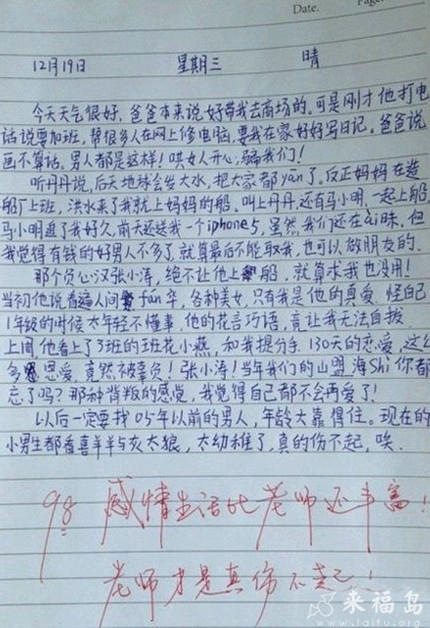 Date.
Page.
12月19日 星期三 晴
今天天气很好，爸爸本来说好带我去商场的。可是刚才他打电
话说要加班，帮很多人在网上修电脑，要我在家好好写日记。爸爸说
画不算话。男人都是这样！哄女人开心，骗我们！
听丹丹说，后天地球会发大水，把大家都yān了。反正妈妈在造
船厂上班，洪水来了我就上妈妈的船。叫上丹丹，还有马小明，一起上船，
马小明追了我好久，前天还送我一个iphone5，虽然，我们还在ài昧，但
我觉得有钱的好男人不多了，就算最后不能取我，也可以做朋友的。
那个负心汉张小涛，绝不让他上船，就算求我也没用！
当初他说看遍人间fán华，各种美女，只有我是他的真爱。怪自己
1年级的时候太年轻不懂事，他的花言巧语，竟让我无法自拔。
上周，他看上了3班的班花小燕，和我提分手。130天的恋爱，这么
多恩爱，竟然被辜负！张小涛！当年我们的山盟海Shì你都
忘了吗？那种背叛的感觉，我觉得自己都不会再爱了！
以后一定要找05年以前的男人，年龄大靠得住。现在的
小男生都看喜羊羊与灰太狼，太幼稚了，真的伤不起，唉。
98 感情生活比老师还丰富！
老师才是真伤不起！
来福岛
www.laifu.org